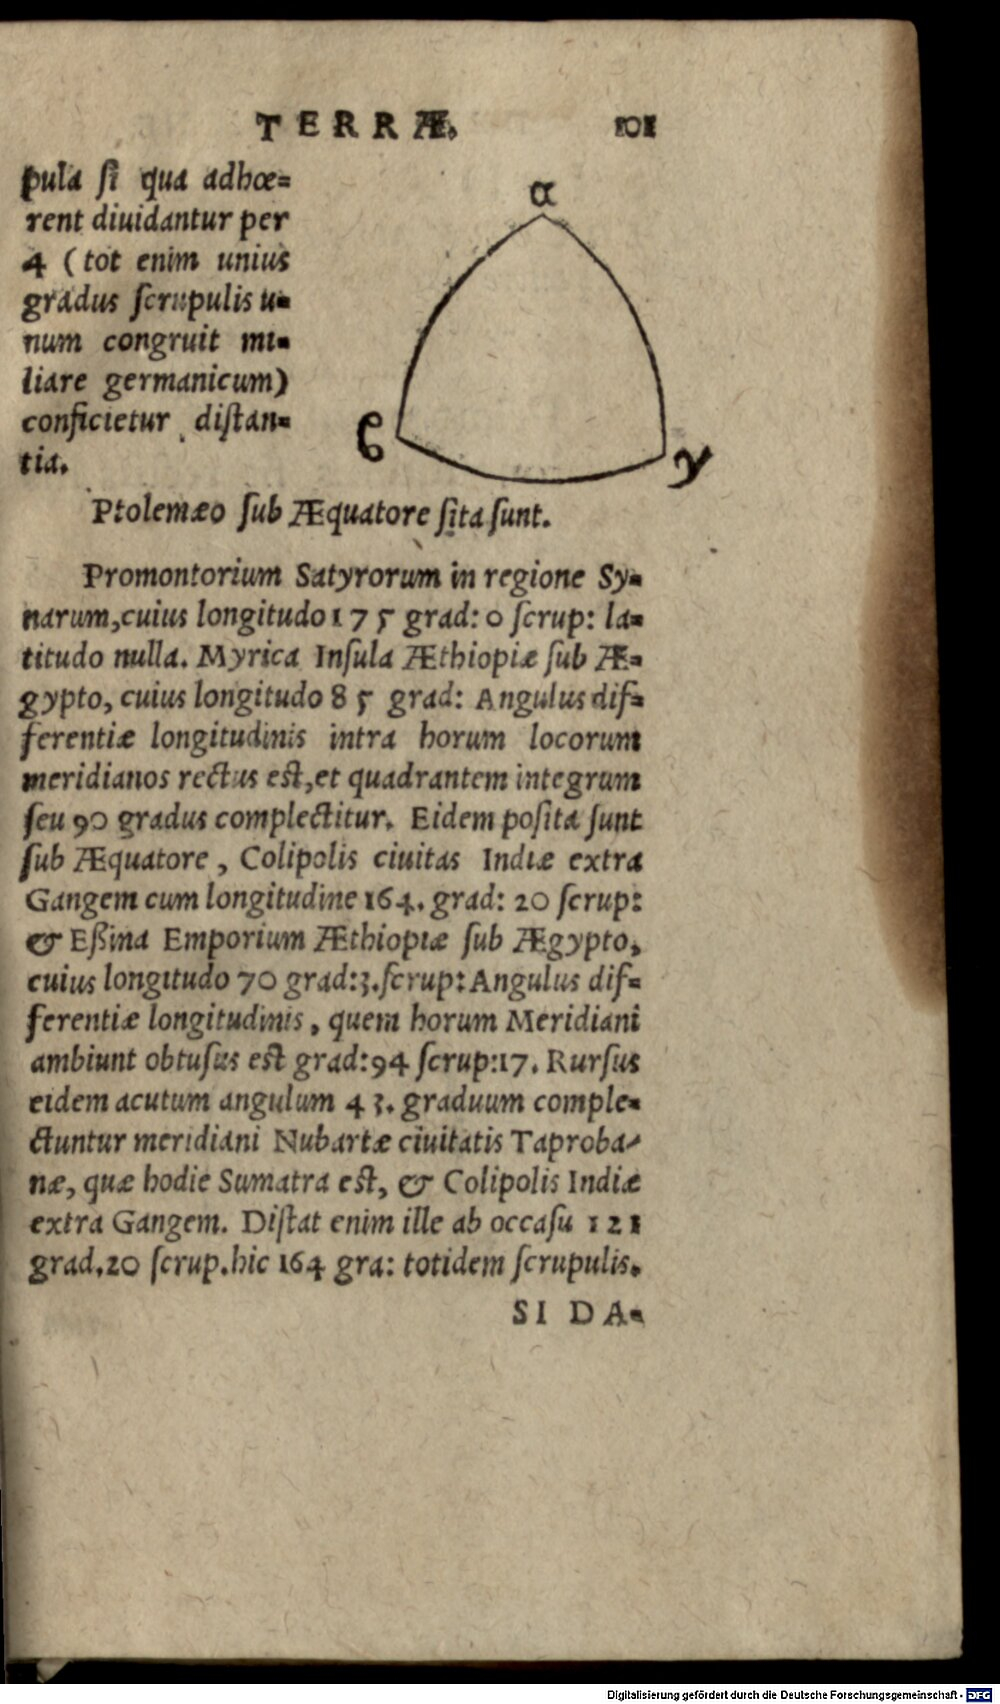 TERRÆ. 101
pula ſi qua adhœ=
rent diuidantur per
4 (tot enim unius
gradus ſcrupulis u=
num congruit mi=
liare germanicum)
conficietur diſtan=
tia.
α
β
γ
Ptolemæo ſub Æquatore ſita ſunt.
Promontorium Satyrorum in regione Sy=
narum, cuius longitudo 175 grad: 0 ſcrup: la=
titudo nulla. Myrica Inſula Æthiopiæ ſub Æ=
gypto, cuius longitudo 85 grad: Angulus dif=
ferentiæ longitudinis intra horum locorum
meridianos rectus eſt, et quadrantem integrum
ſeu 90 gradus complectitur. Eidem poſita ſunt
ſub Æquatore, Colipolis ciuitas Indiæ extra
Gangem cum longitudine 164. grad: 20 ſcrup:
& Eßina Emporium Æthiopiæ ſub Ægypto,
cuius longitudo 70 grad:3.ſcrup: Angulus dif=
ferentiæ longitudinis, quem horum Meridiani
ambiunt obtuſus eſt grad:94 ſcrup:17. Rurſus
eidem acutum angulum 43. graduum comple=
ctuntur meridiani Nubartæ ciuitatis Taproba=
næ, quæ hodie Sumatra eſt, & Colipolis Indiæ
extra Gangem. Diſtat enim ille ab occaſu 121
grad.20 ſcrup.hic 164 gra: totidem ſcrupulis.
SI DA=
Digitalisierung gefördert durch die Deutsche Forschungsgemeinschaft - DFG